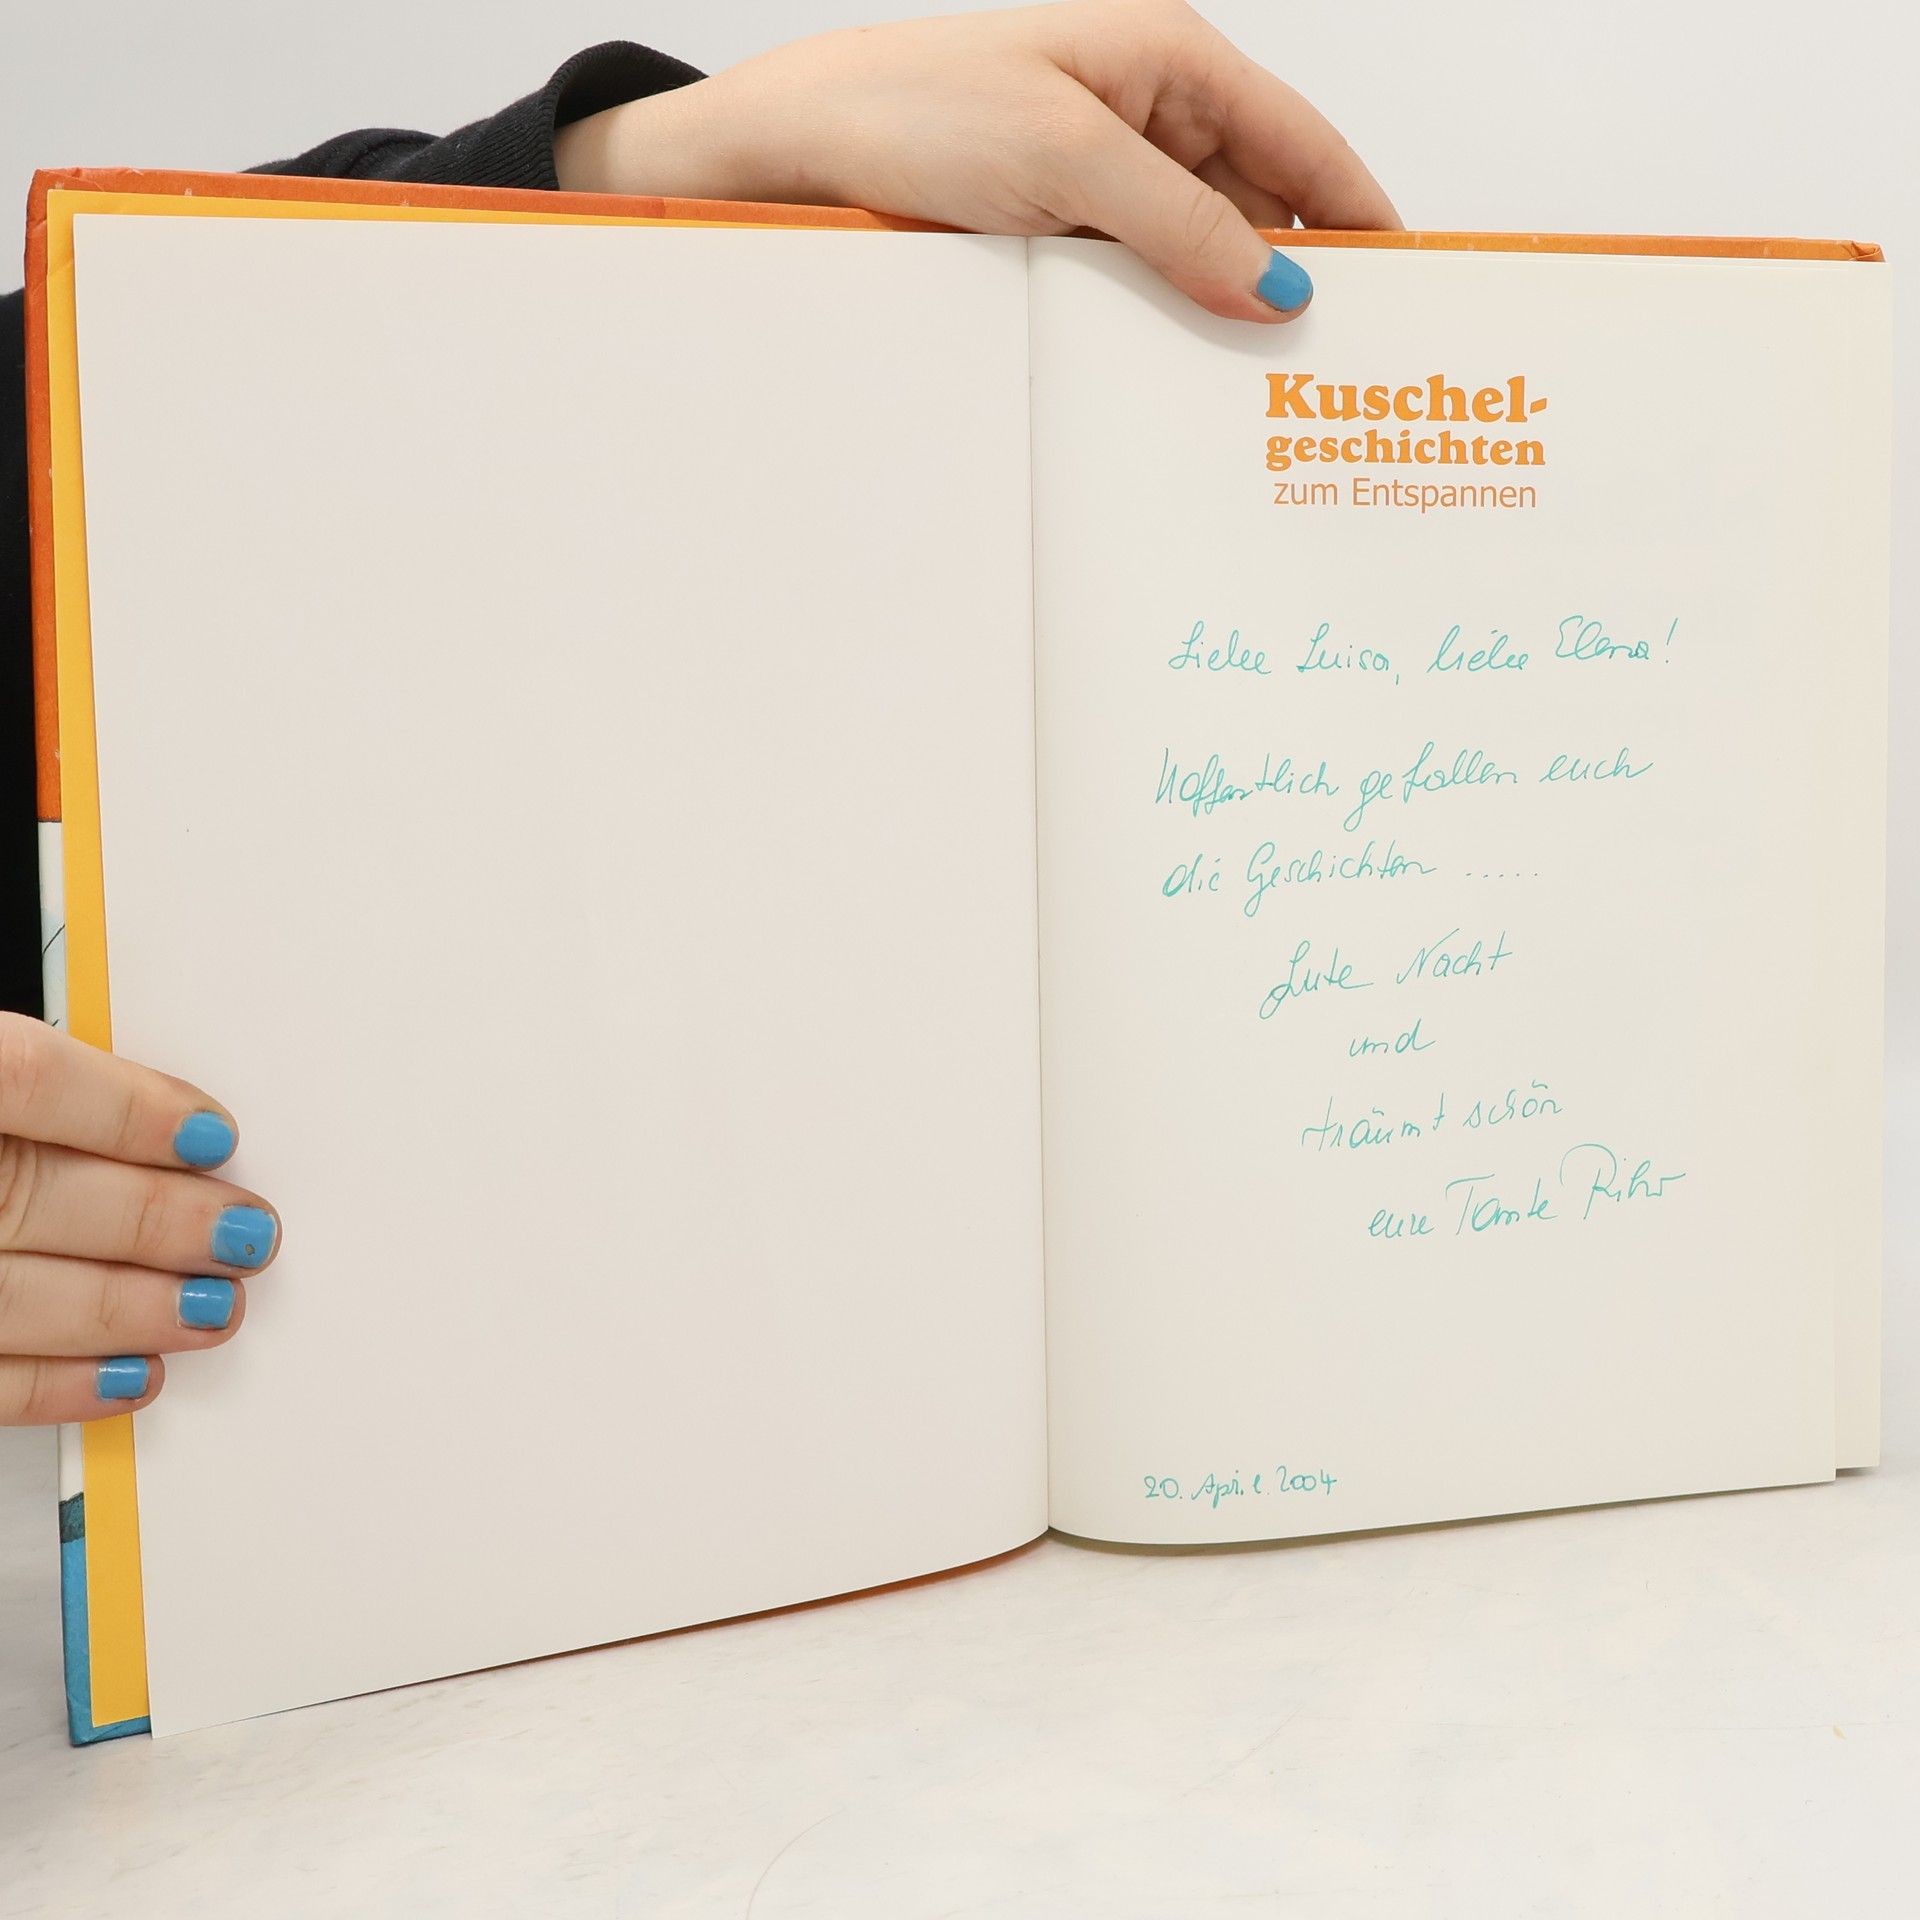 Kuschel-
geschichten
zum Entspannen
Liebe Luisa, liebe Elena!
Hoffentlich gefallen euch
die Geschichten .....
Gute Nacht
und
träumt schön
eure Tante
20. April 2004